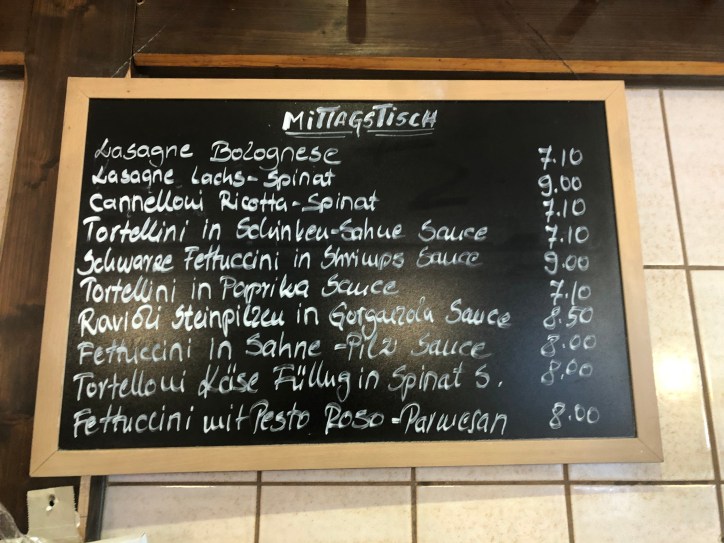 MITTAGSTISCH
Lasagne Bolognese 7.10
Lasagne Lachs-Spinat 9.00
Cannelloni Ricotta-Spinat 7.10
Tortellini in Schinken-Sahne Sauce 7.10
Schwarze Fettuccini in Shrimps Sauce 9.00
Tortellini in Paprika Sauce 7.10
Ravioli Steinpilzen in Gorgonzola Sauce 8.50
Fettuccini in Sahne-Pilz Sauce 8.00
Tortelloni Käse Füllug in Spinat S. 8.00
Fettuccini mit Pesto Roso-Parmesan 8.00